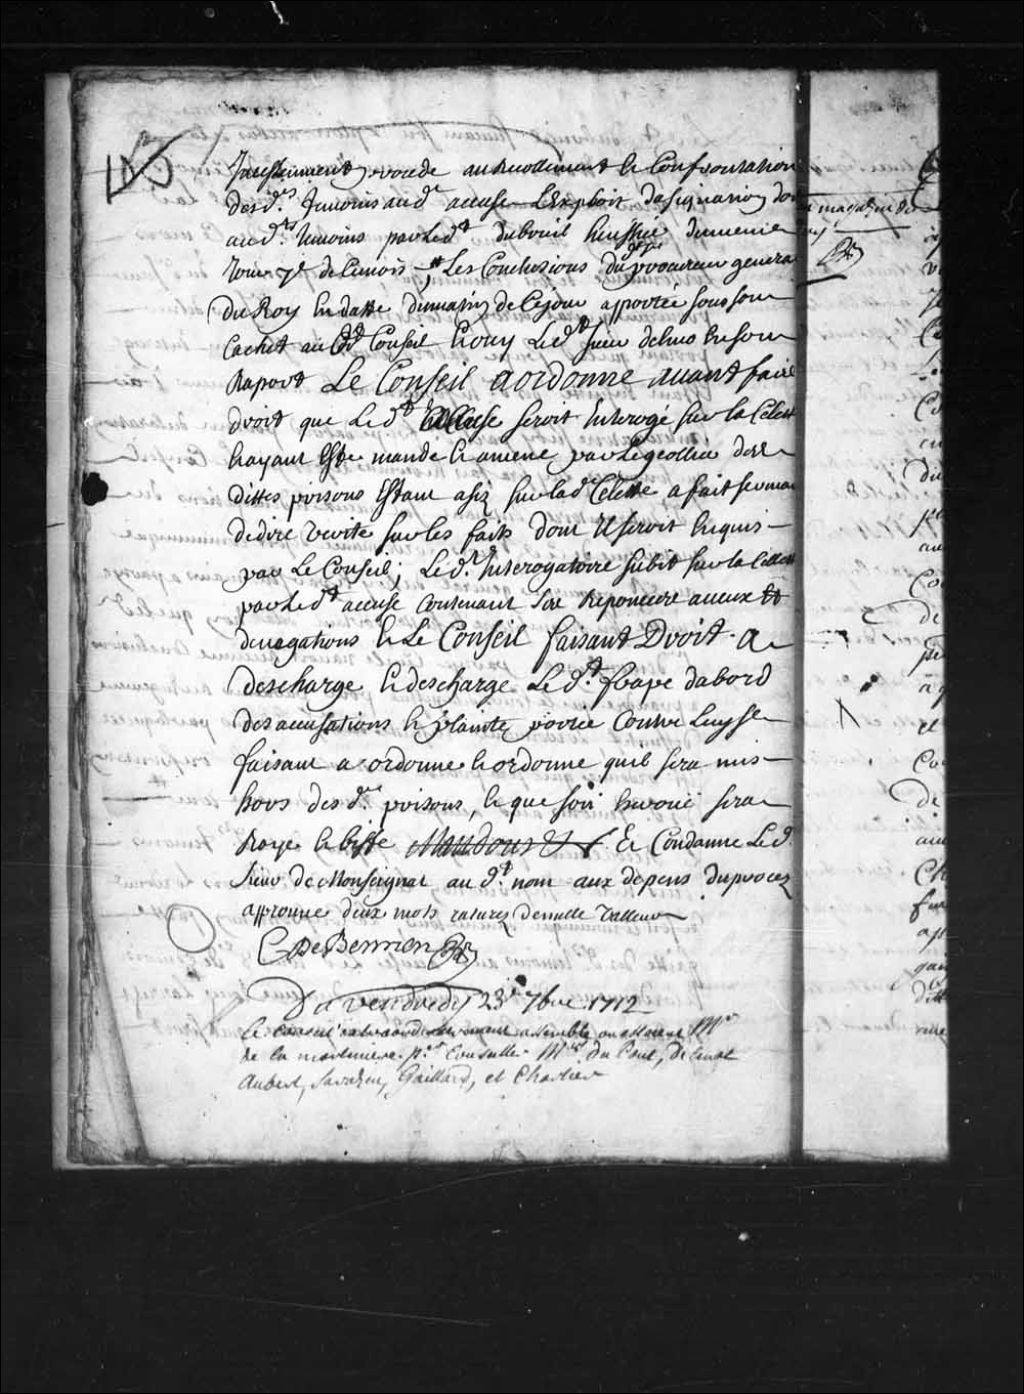 Incessamment procede au Recollement et Confrontation
desd.s temoins aud.t accusé L'Exploit dassignation donn
aud.ts temoins par Led.t dubreuil huissier du meme
Jour 7e de Ce mois ; Les Conclusions du procureur general
Du Roy En datte du matin de Ce jour aportée sous son
Cachet aud.t Conseil Et ouy Led.t sieur delino En son
Raport Le Conseil a ordonné avant faire
droit que Led.t accuse seroit Interogé sur la Celette
Et ayant Esté mandé Et amené par Le geollier desd.
dittes prisons Estant asiz sur lad.e Celette a fait serman
de dire verité sur les faits dont Il seroit Enquis
par Le Conseil ; Led.t Interogatoire subit sur la Cellette
par Led.t accusé Contenant Ses Reponces aveux Et
denegations Et Le Conseil faisant Droit a
deschargé Et descharge Led.t frape dabord
des accusations Et plainte portée Contre Luy Ce
faisant a ordonné Et ordonne quil sera mis
hors desd.es prisons, Et que son Ecroüe sera
Rayé Et biffé Et Condamne Led.
sieur de Monseignat aud.t nom aux depens du procez
approuvé deux mots raturez de nulle valleur
C DeBermen
Du vendredy 23e 7bre 1712
Le conseil extraordinairement assemblé ou estoient M.r
de la martiniere p.er Conseiller M.rs du Pont, de Linot
Aubert, Sarazin, Gaillard, et Chartier